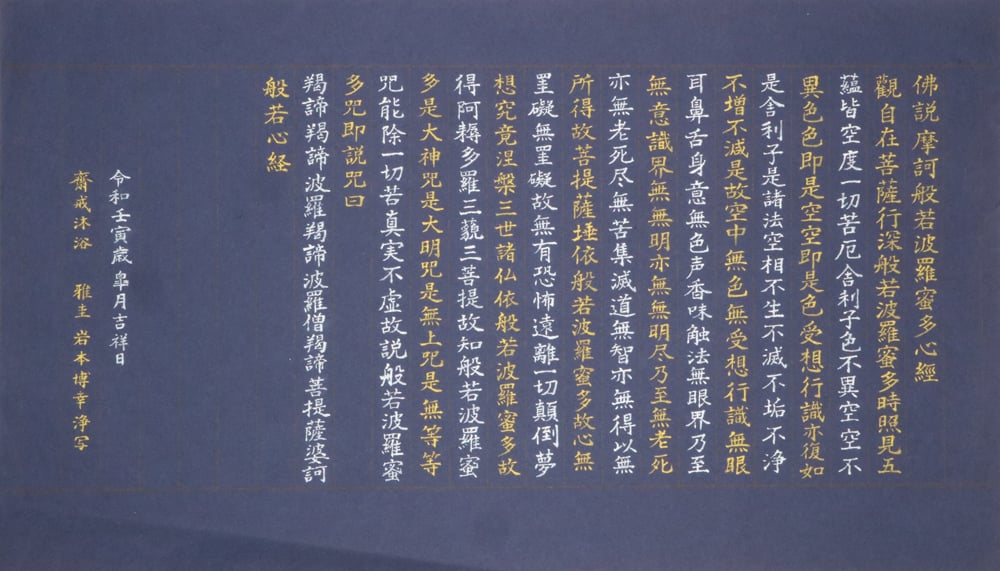 佛説摩訶般若波羅蜜多心經
觀自在菩薩行深般若波羅蜜多時照見五
蘊皆空度一切苦厄舎利子色不異空空不
異色色即是空空即是色受想行識亦復如
是舎利子是諸法空相不生不滅不垢不浄
不増不減是故空中無色無受想行識無眼
耳鼻舌身意無色声香味触法無眼界乃至
無意識界無無明亦無無明尽乃至無老死
亦無老死尽無苦集滅道無智亦無得以無
所得故菩提薩埵依般若波羅蜜多故心無
罣礙無罣礙故無有恐怖遠離一切顛倒夢
想究竟涅槃三世諸仏依般若波羅蜜多故
得阿耨多羅三藐三菩提故知般若波羅蜜
多是大神咒是大明咒是無上咒是無等等
咒能除一切苦真実不虚故説般若波羅蜜
多咒即説咒曰
羯諦羯諦波羅羯諦波羅僧羯諦菩提薩婆訶
般若心経
令和壬寅歳皐月吉祥日
齋戒沐浴 雅圭 岩本博幸浄写